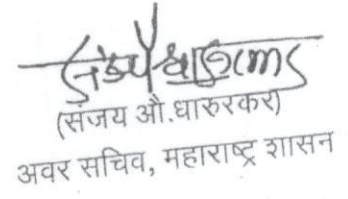 (संजय औ.धारुरकर)
अवर सचिव, महाराष्ट्र शासन